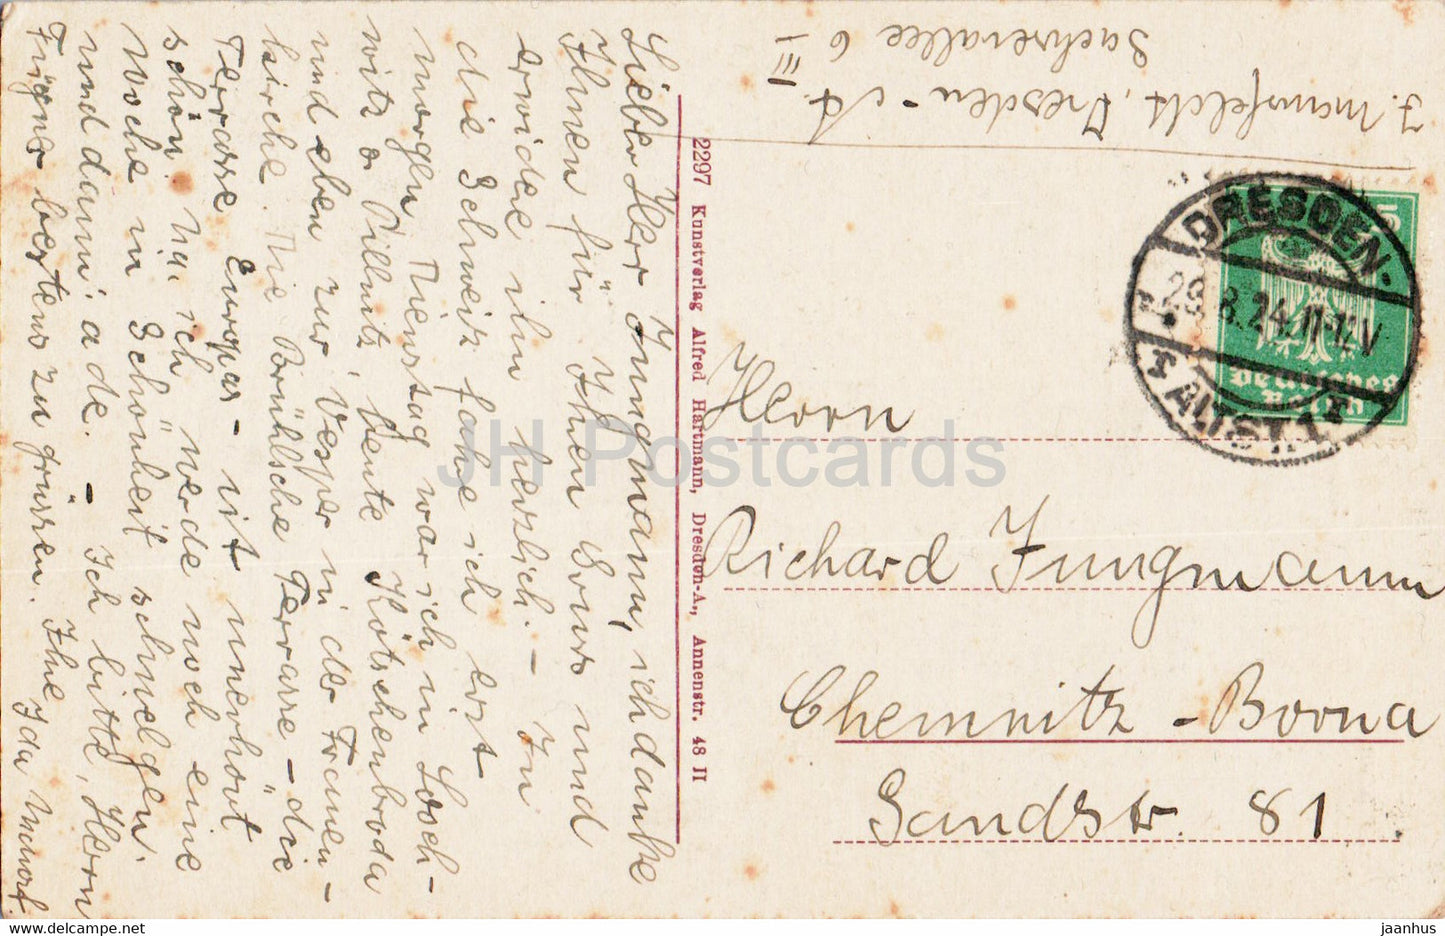 J. Mannsfeldt, Dresden-A.
Sachsenallee 6 III
Lieber Herr Jungmann, ich danke
Ihnen für Ihren Gruss und
erwidre ihn herzlich. - In
die Schweiz fahre ich erst
morgen. Dienstag war ich in Losch-
witz & Pillnitz, heute Kötschenbroda
und eben zur „Vesper in der Frauen-
kirche. Die Brühlsche Terrasse - „die
Terrasse Europas - ist unerhört
schön. Na, ich werde noch eine
Woche in Schönheit schwelgen.
und dann: ade. - Ich bitte, Herrn
Fügner bestens zu grüssen. Ihre Ida
2297 Kunstverlag Alfred Hartmann, Dresden-A., Annenstr. 48 II
DRESDEN-
29.8.24.11-12V
ALTST. 1
Deutsches
Reich
Herrn
Richard Jungmann
Chemnitz-Borna
Sandstr. 81.
JH Postcards
jaanhus
www.delcampe.net